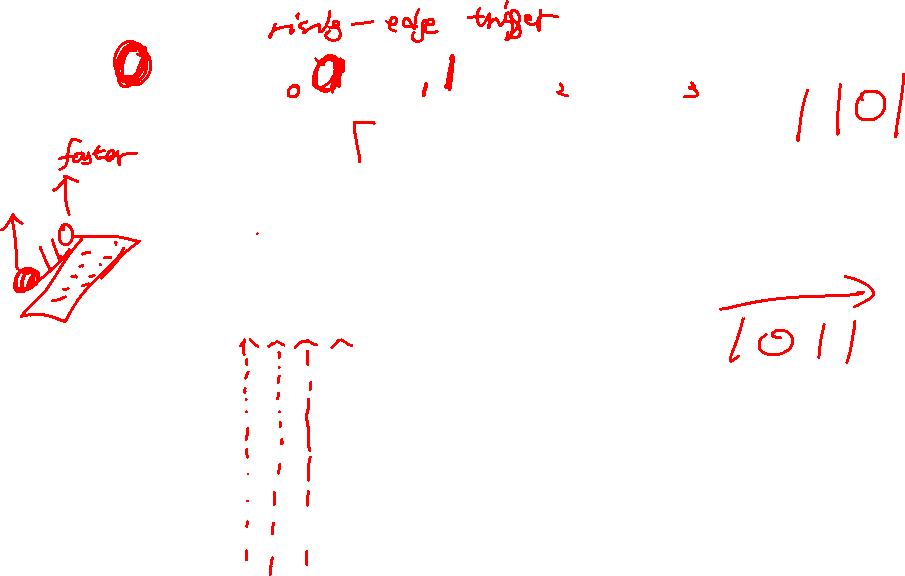 rising-edge trigger
0
0 0 1 1 2 3
1101
faster
1011